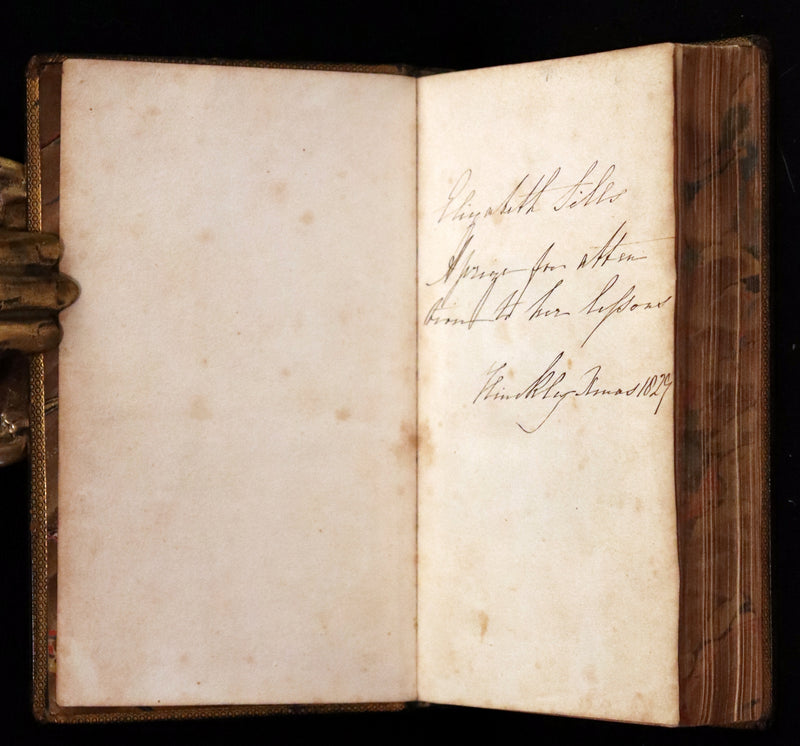 Elizabeth Sills
A prize for atten
tion to her leſsons
Hinckley Xmas 1829